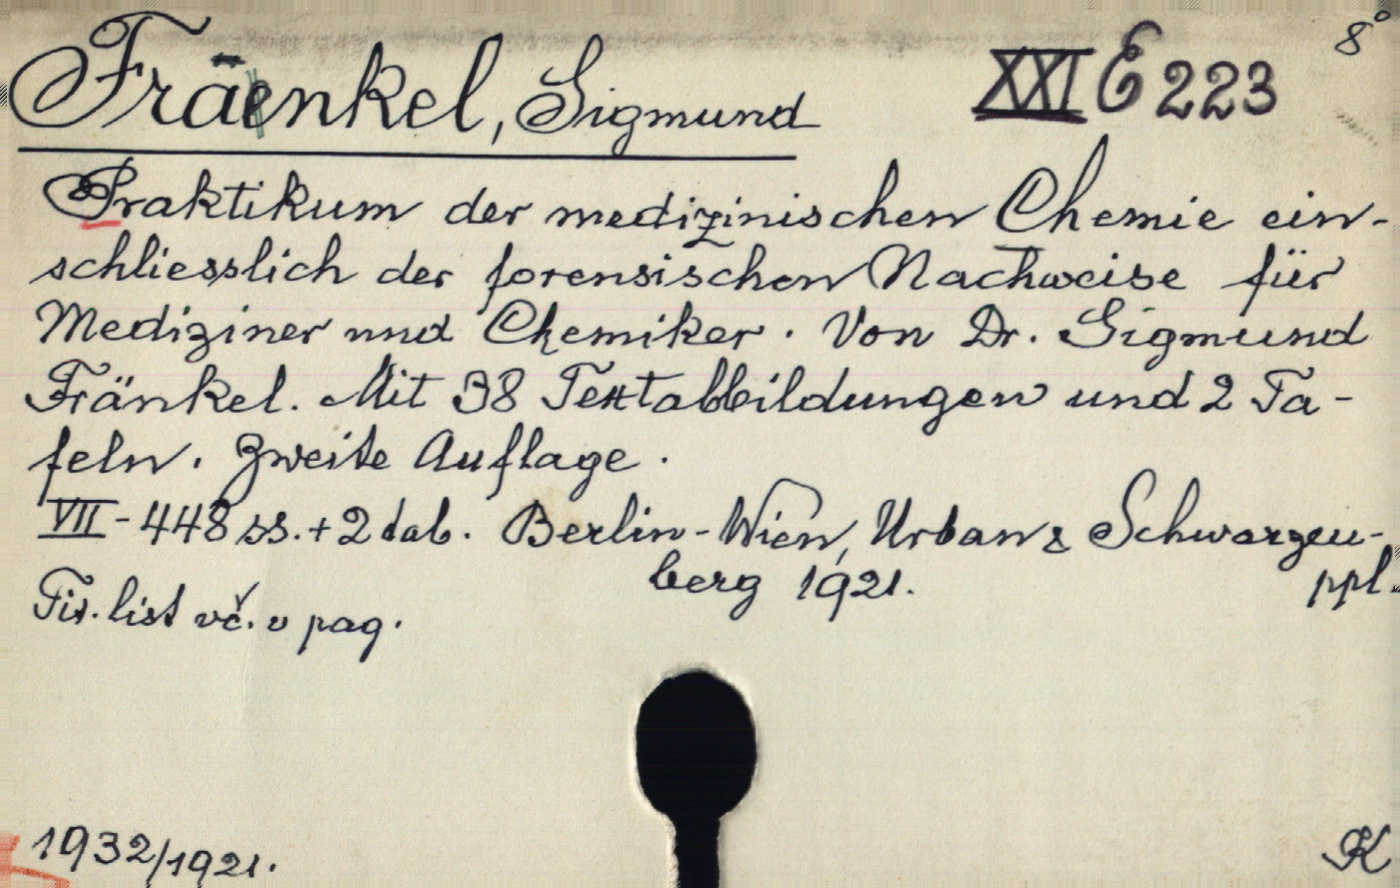 8°
Fräenkel, Sigmund XXI E 223
Praktikum der medizinischen Chemie ein-
schliesslich der forensischen Nachweise für
Mediziner und Chemiker. Von Dr. Sigmund
Fränkel. Mit 38 Textabbildungen und 2 Ta-
feln. Zweite Auflage.
VII - 448 ss. + 2 tab. Berlin - Wien, Urban & Schwarzen-
berg 1921. ppl.
Tit. list vč. v pag.
1932/1921.
K